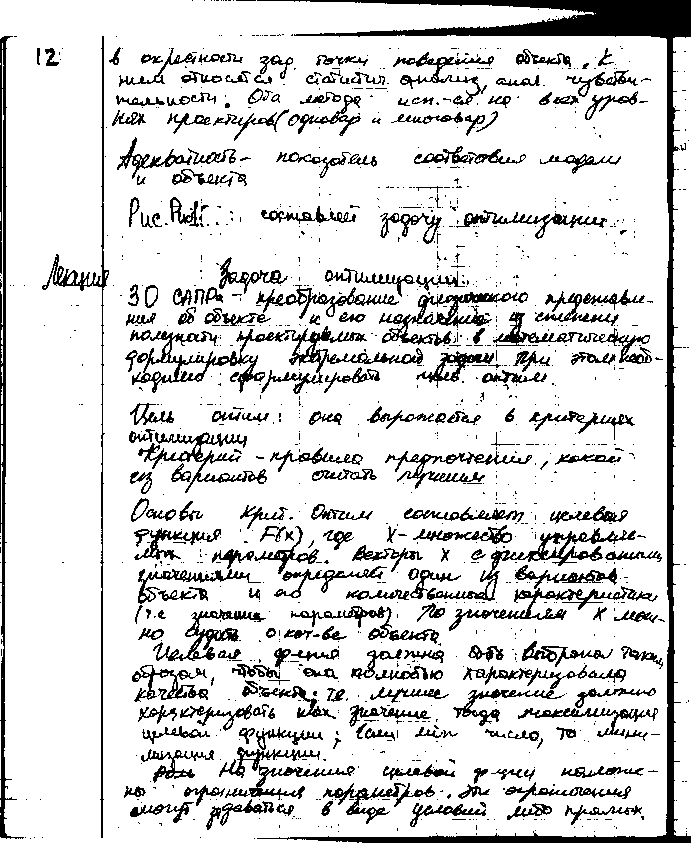 12
в окрестности зад точки поведения объекта. К
ним относятся статистич анализ, анал. чувстви-
тельности. Оба метода исп-ся на всех уров-
нях проектиров (одновар и многовар)
Адекватность - показатель соответствия модели
и объекта
Рис. : составляем задачу оптимизации.
Лекция
Задача оптимизации
ЗО САПРа - преобразование физического представле-
ния об объекте и его назначении и степени
полезности проектируемых объектов в математическую
формулировку экстремальной задачи при этом необ-
ходимо сформулировать цель оптим.
Цель оптим: она выражается в критериях
оптимизации
Критерий - правила предпочтения, какой
из вариантов считать лучшим
Основы крит. оптим составляет целевая
функция F(x), где X-множество управляе-
мых параметров. Векторы X с фиксированными
значениями определяет один из вариантов
объекта и его количественной характеристики
(т.е значения параметров) По значениям X мож-
но судить о кач-ве объекта
Целевая ф-ция должна быть выбрана таким
образом, чтобы она полностью характеризовала
качества объекта; т.е. лучшее значение должно
характеризовать значение, тогда максимизация
целевой функции; Если min число, то мини-
мизация функции.
На значения целевой ф-ции наложе-
ны ограничения параметров. Эти ограничения
могут задаваться в виде условий либо прямых.